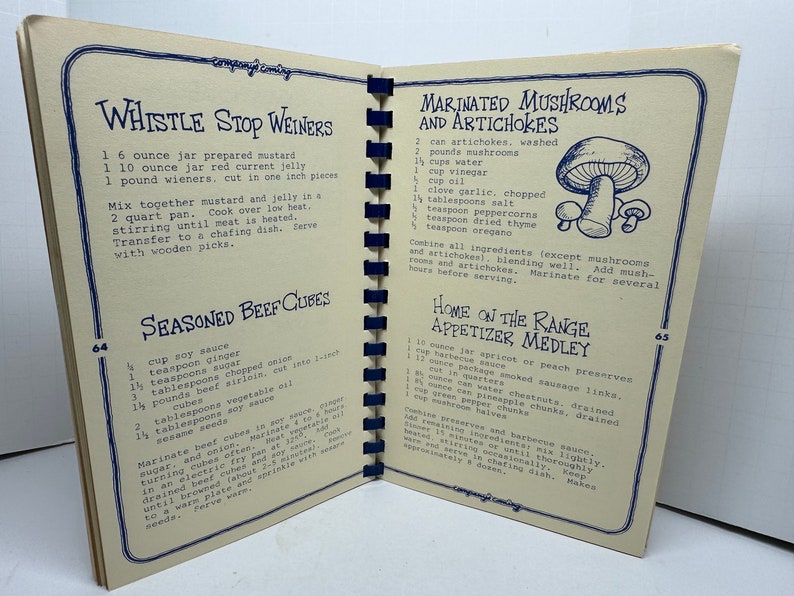 company's coming
WHISTLE STOP WEINERS
1 6 ounce jar prepared mustard
1 10 ounce jar red current jelly
1 pound wieners, cut in one inch pieces
Mix together mustard and jelly in a
2 quart pan. Cook over low heat,
stirring until meat is heated.
Transfer to a chafing dish. Serve
with wooden picks.
SEASONED BEEF CUBES
¼ cup soy sauce
1 teaspoon ginger
1½ teaspoons sugar
3 tablespoons chopped onion
1½ pounds beef sirloin, cut into 1-inch
cubes
2 tablespoons vegetable oil
1½ tablespoons soy sauce
sesame seeds
Marinate beef cubes in soy sauce, ginger
sugar, and onion. Marinate 4 to 6 hours,
turning cubes often. Heat vegetable oil
in an electric fry pan at 325°. Add
drained beef cubes and soy sauce. Cook
until browned (about 2-5 minutes). Remove
to a warm plate and sprinkle with sesame
seeds. Serve warm.
64
MARINATED MUSHROOMS
AND ARTICHOKES
2 can artichokes, washed
2 pounds mushrooms
1½ cups water
1 cup vinegar
½ cup oil
1 clove garlic, chopped
1½ tablespoons salt
½ teaspoon peppercorns
½ teaspoon dried thyme
½ teaspoon oregano
Combine all ingredients (except mushrooms
and artichokes), blending well. Add mush-
rooms and artichokes. Marinate for several
hours before serving.
HOME ON THE RANGE
APPETIZER MEDLEY
1 10 ounce jar apricot or peach preserves
1 cup barbecue sauce
1 12 ounce package smoked sausage links,
cut in quarters
1 8½ ounce can water chestnuts, drained
1 8¼ ounce can pineapple chunks, drained
1 cup green pepper chunks
1 cup mushroom halves
Combine preserves and barbecue sauce.
Add remaining ingredients; mix lightly.
Simmer 15 minutes or until thoroughly
heated, stirring occasionally. Keep
warm and serve in chafing dish. Makes
approximately 8 dozen.
65
company's coming